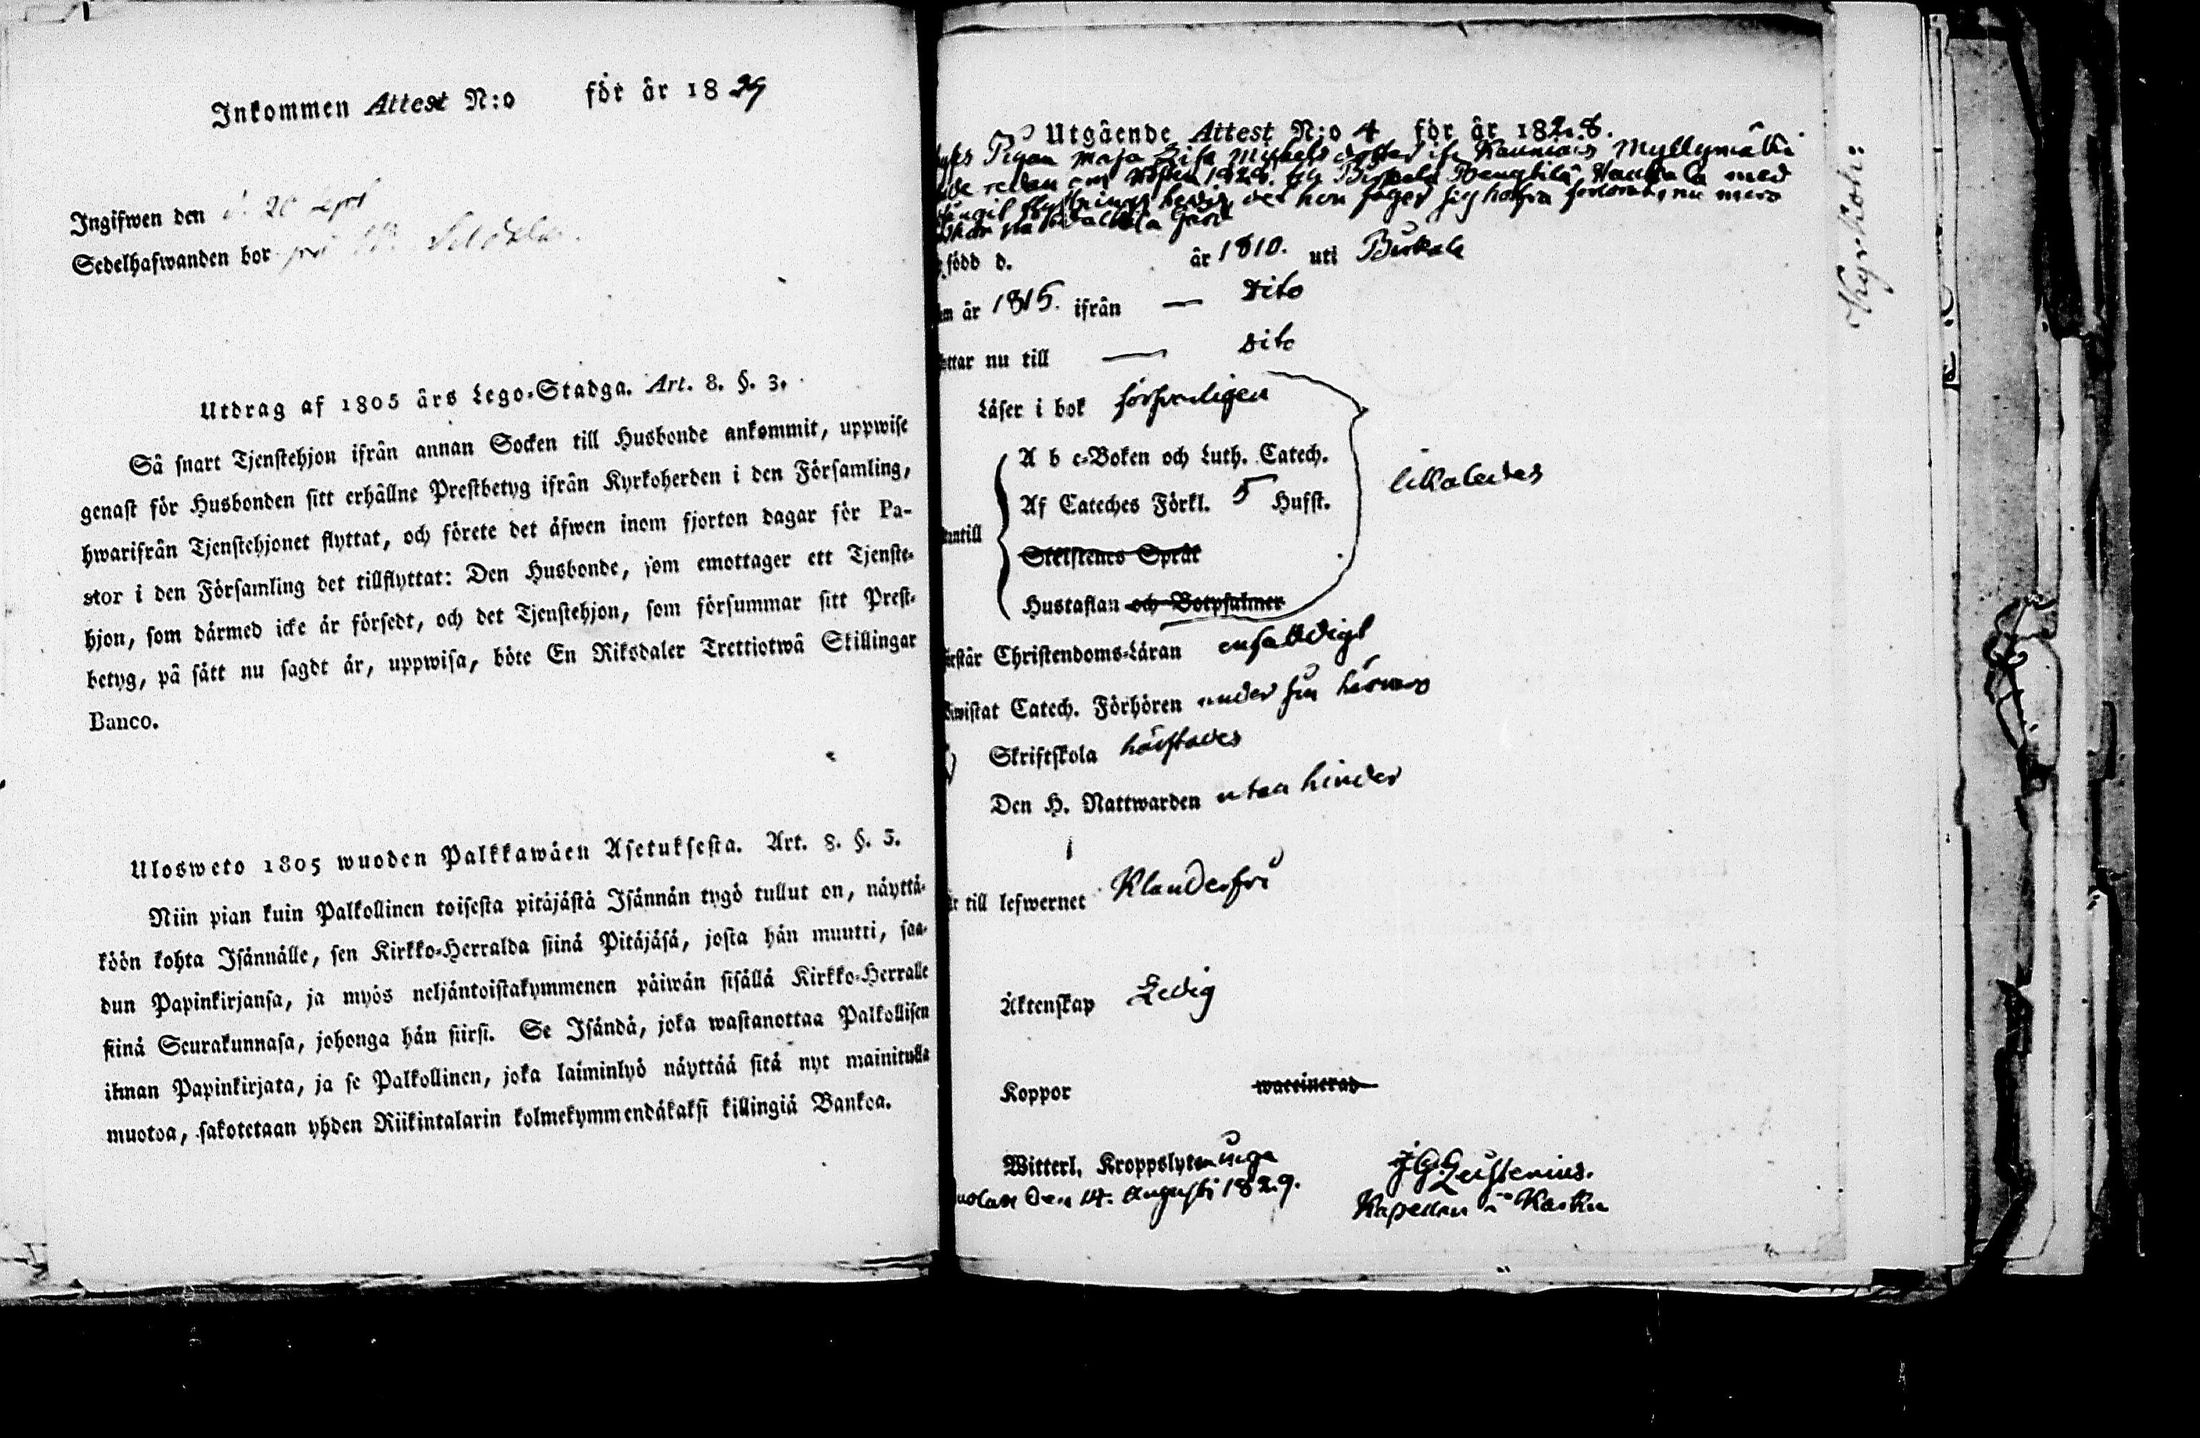 Inkommen Attest N:o för år 1829
Ingifwen den d. 20 Sept
Sedelhafwanden bor på
Utdrag af 1805 års Lego-Stadga. Art. 8. §. 3.
Så snart Tjenstehjon ifrån annan Socken till Husbonde ankommit, uppwise
genast för Husbonden sitt erhållne Prestbetyg ifrån Kyrkoherden i den Församling,
hwarifrån Tjenstehjonet flyttat, och förete det äfwen inom fjorton dagar för Pa-
stor i den Församling det tillflyttat: Den Husbonde, som emottager ett Tjenste-
hjon, som därmed icke är försedt, och det Tjenstehjon, som försummar sitt Prest-
betyg, på sätt nu sagdt är, uppwisa, böte En Riksdaler Trettiotwå Skillingar
Banco.
Ulosweto 1805 wuoden Palkkawäen Asetuksesta. Art. 8. §. 3.
Niin pian kuin Palkollinen toisesta pitäjästä Isännän tygö tullut on, näyttä-
köön kohta Isännälle, sen Kirkko-Herralda siinä Pitäjäsä, josta hän muutti, saa-
dun Papinkirjansa, ja myös neljäntoistakymmenen päiwän sisällä Kirkko-Herralle
siinä Seurakunnasa, johonga hän siirsi. Se Isändä, joka wastanottaa Palkollisen
ilman Papinkirjata, ja se Palkollinen, joka laiminlyö näyttää sitä nyt mainitulla
muotoa, sakotetaan yhden Riikintalarin kolmekymmendäkaksi killingiä Bankoa.
Utgående Attest N:o 4 för år 1828.
Pigan Maja Lisa Mickelsdotter ifr. Kauniais Myllymäki
redan om hösten 1828 till Birkala Haukala med
hon säger sig hafva förlorat, nu mera
född d. år 1810. uti Birkala
år 1815. ifrån — Dito
ttar nu till — dito
Läser i bok försvarligen
A b c-Boken och Luth. Catech.
Af Cateches Förkl. 5 Hufst. likaledes
antill
Stelstenes Språk
Hustaflan och Botpsalmer
rstår Christendoms-Läran enfaldigt
wistat Catech. Förhören under sin härvaro
Skriftskola härstädes
Den H. Nattwarden utan hinder
r till lefwernet Klanderfri
Äktenskap Ledig
Koppor waccinerad
Witterl. Kroppslyten inga
den 14. Augusti 1829.
Kapellan i Kasku
Kyrkoh: